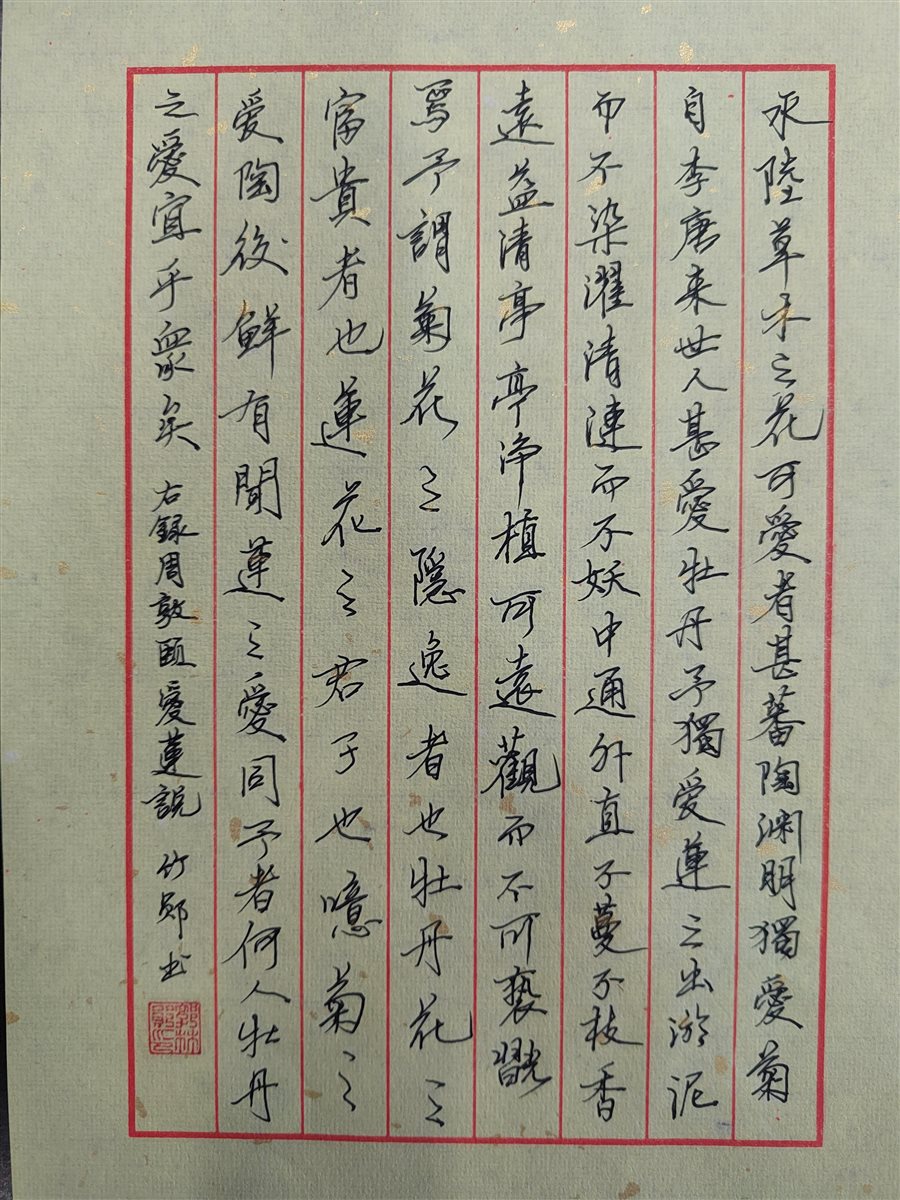 水陸草木之花可愛者甚蕃陶渊明獨愛菊
自李唐来世人甚愛牡丹予獨爱蓮之出淤泥
而不染濯清漣而不妖中通外直不蔓不枝香
遠益清亭亭净植可遠觀而不可亵翫
焉予謂菊花之隱逸者也牡丹花之
富貴者也蓮花之君子也噫菊之
爱陶後鲜有聞蓮之愛同予者何人牡丹
之愛宜乎眾矣 右録周敦頤爱蓮説 竹郧书